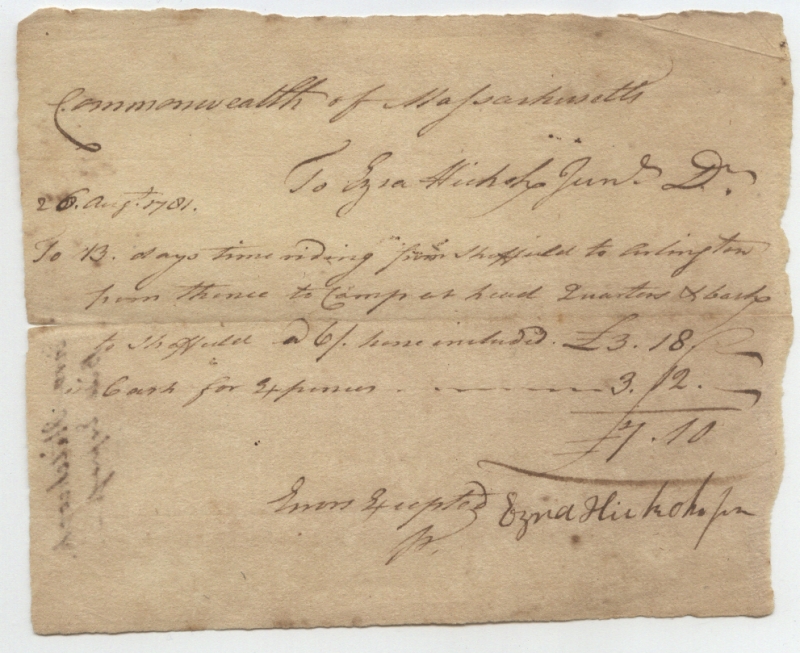 Commonwealth of Massachusetts
To Ezra Hickok Junr. Dr.
26. Augt. 1781.
To 13. days time riding from Sheffield to Arlington
from thence to Camp at head Quarters & back
to Sheffield @ 6/. horse included. £3.18.
" Cash for Expences 3.12.
£7.10
Errors Excepted Ezra Hickok Jun
pr.